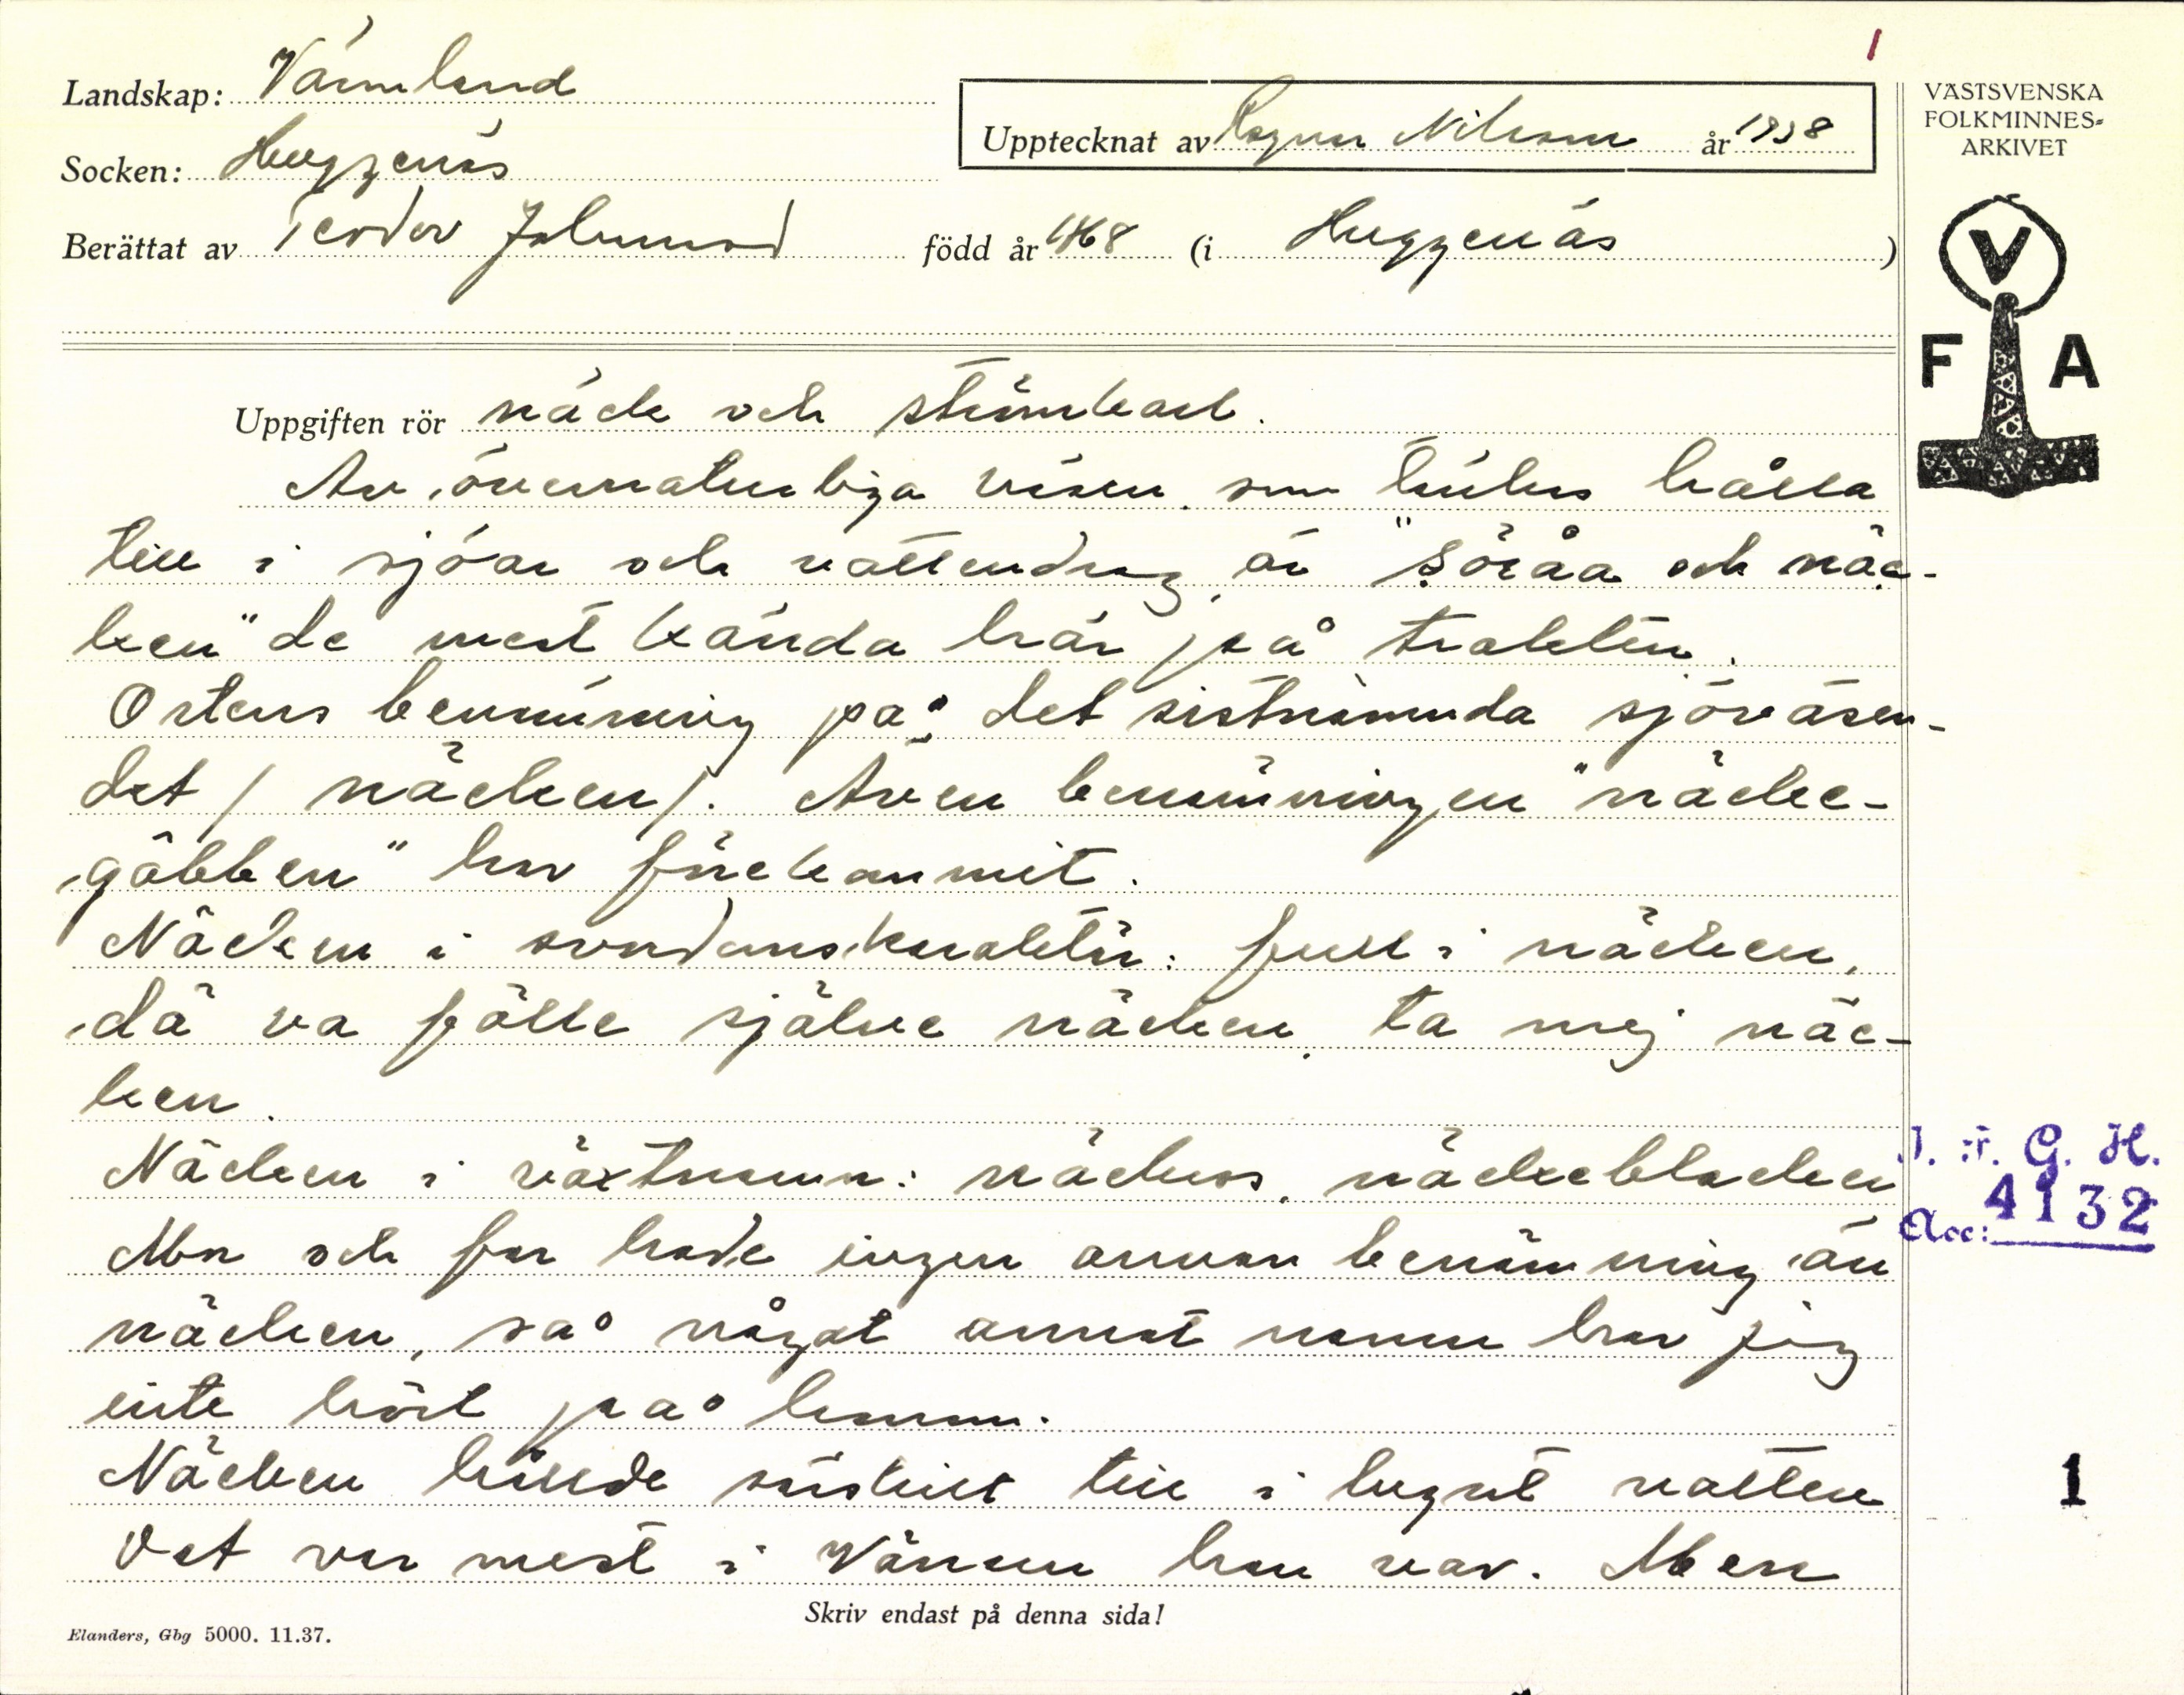 1
Landskap: Värmland
VÄSTSVENSKA
FOLKMINNES-
ARKIVET
Upptecknat av Ragnar Nilsson år 1938
Socken: Huggenäs
Berättat av Teodor född år 1868 (i Huggenäs)
V
F A
Uppgiften rör näck och strömkarl.
Av övernaturliga väsen, som troddes hålla
till i sjöar och vattendrag, är "söråa och näc-
ken" de mest kända här på trakten.
Ortens benämning på det sistnämnda sjöväsen-
det / näcken /. Även benämningen "näcke-
gôbben" har förekommit.
Näcken i ordanskaraktär: full i näcken,
dä va fälle själve näcken, ta mej näc-
ken.
Näcken i växtnamn: näckros, näckeblacker
Mor och far hade ingen annan benämning än
näcken, så något annat namn har jag
inte hört på honom.
Näcken hällde särskilt till i lugnt vatten
Det var mest i Vänern han var. Men
J. F. G. H.
Acc: 4132
1
Skriv endast på denna sida!
Elanders, Gbg 5000. 11.37.